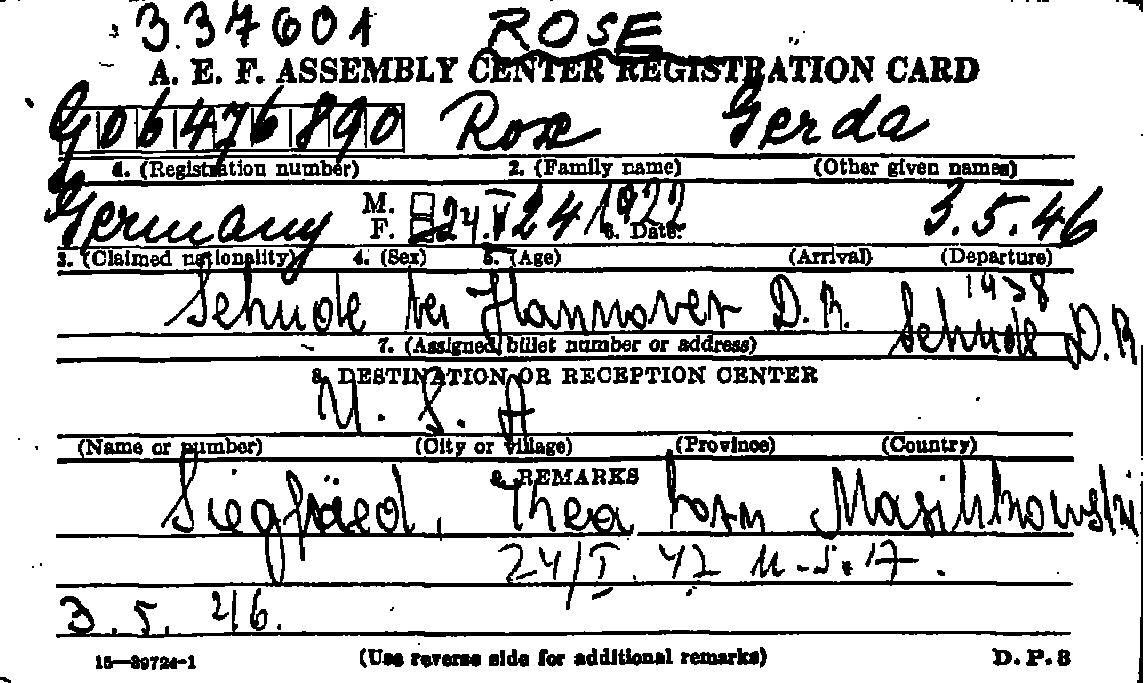 337601 ROSE
A. E. F. ASSEMBLY CENTER REGISTRATION CARD
G06476890 Rose Gerda
1. (Registration number) 2. (Family name) (Other given names)
Germany M. F. 24 1922 6. Date: 3.5.46
3. (Claimed nationality) 4. (Sex) 5. (Age) (Arrival) (Departure)
Sehnde bei Hannover D.R. 1938
7. (Assigned billet number or address) Sehnde D.R.
8. DESTINATION OR RECEPTION CENTER
U. S. A
(Name or number) (City or village) (Province) (Country)
9. REMARKS
Siegfried, Thea born
3. 5. 46.
15—39724-1 (Use reverse side for additional remarks) D.P.8